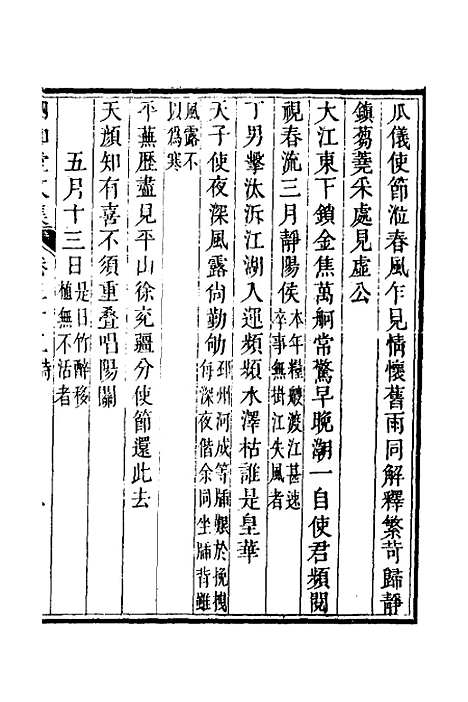 瓜儀使節涖春風乍見情懷舊雨同解釋繁苛歸靜
鎮芻蕘采處見虛公
大江東下鎖金焦萬舸常驚早晚潮一自使君頻閱
視春流三月靜陽侯本年糧艘渡江甚速
卒事無掛江失風者
丁男擊汰泝江湖入運頻頻水澤枯誰是皇華
天子使夜深風露尙勤劬邳州河成等牐艱於挽拽
每深夜偕余同坐牐背雖
風露不
以爲寒
平蕪歷盡見平山徐兖疆分使節還此去
天顏知有喜不須重疊唱陽關
五月十三日是日竹醉移
植無不活者